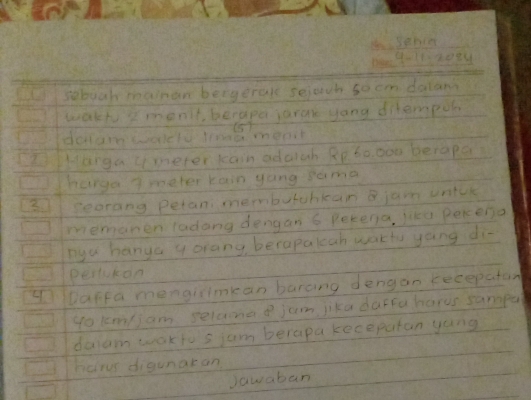 Senin
4-11-2024
1 sebuah mainan bergerak sejauh 60 cm dalam
waktu 2 menit. berapa jarak yang ditempuh
dalam waktu lima (5) menit
2 Harga 4 meter kain adalah Rp 60.000 berapa
harga 7 meter kain yang sama
3. seorang petani membutuhkan 8 jam untuk
memanen ladang dengan 6 Pekerja. jika pekerja
nya hanya 4 orang, berapakah waktu yang di-
perlukan
4 Daffa mengirimkan barang dengan kecepatan
40 km/jam selama 8 jam jika daffa harus sampai
dalam waktu 5 jam berapa kecepatan yang
harus digunakan
Jawaban